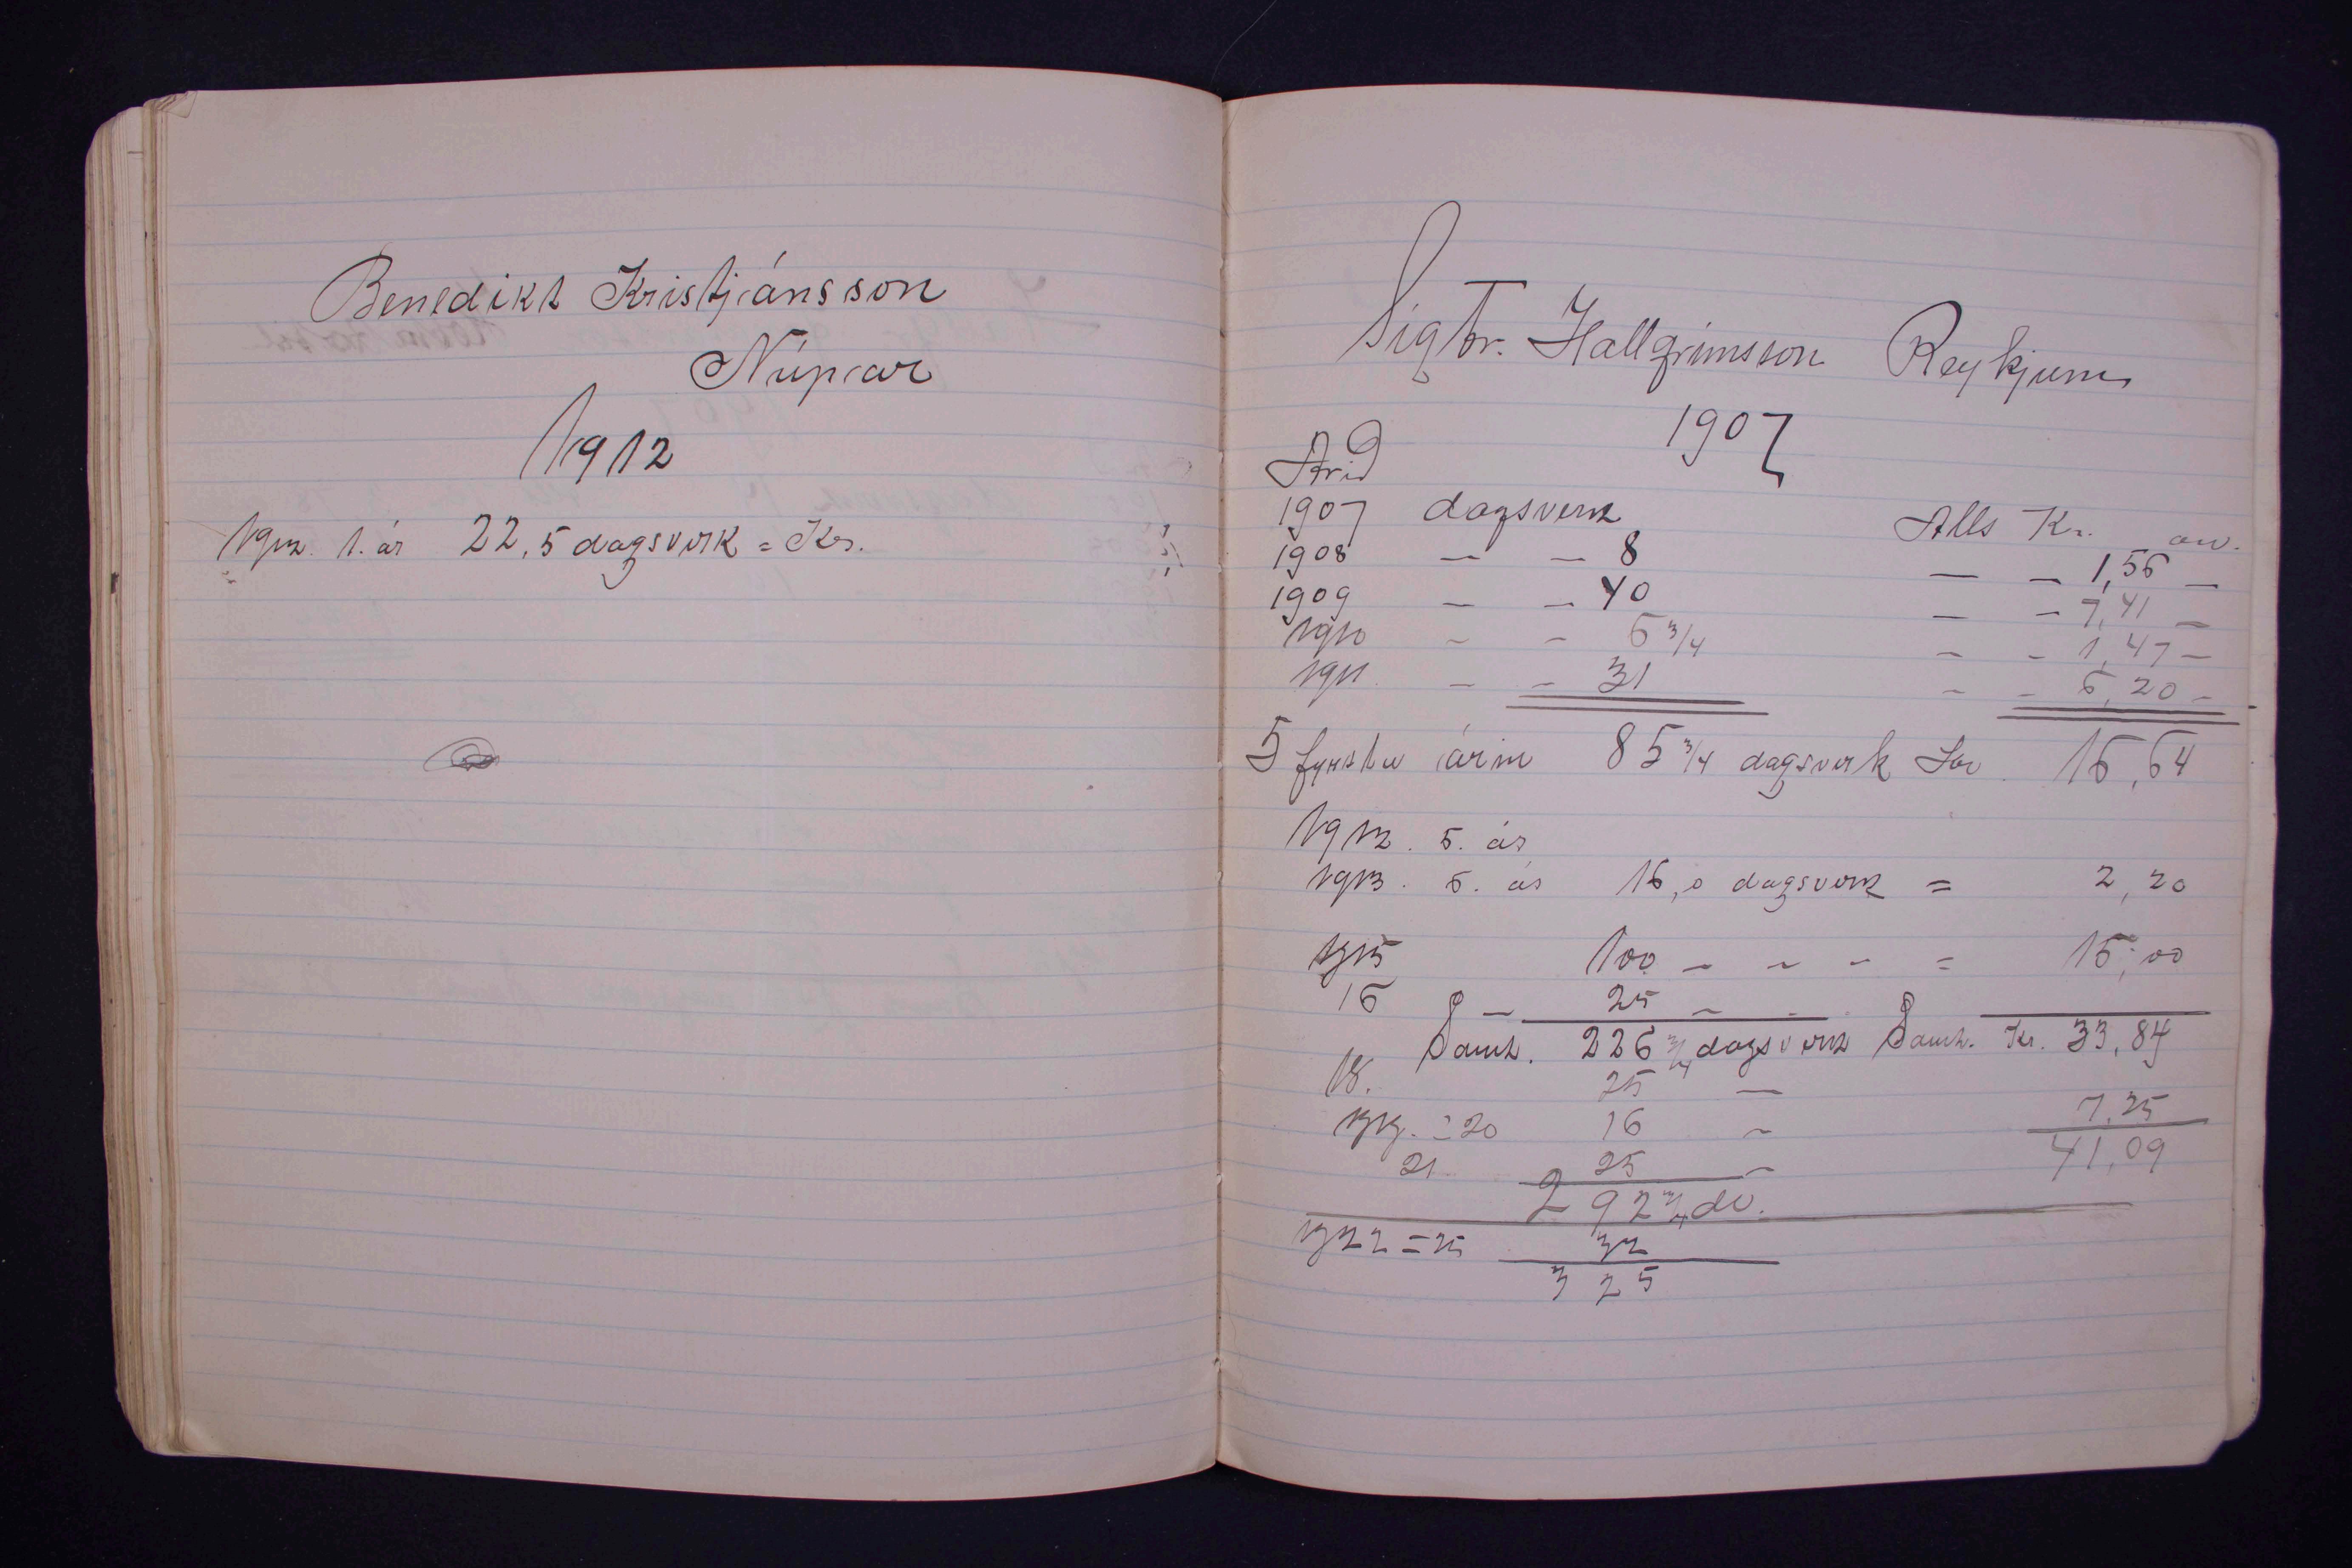 Benedikt Kristjánsson
Núpar
1912
1912. 1. ár 22,5 dagsverk = Kr.
Sigtr. Hallgrímsson Reykjum
1907
Árið
1907 dagsverk Alls Kr. au.
1908 — — 8 — — 1,56 —
1909 — — 40 — — 7,41 —
1910 — — 6 3/4 — — 1,47 —
1911 — — 31 — — 6,20 —
5 fyrstu árin 85 3/4 dagsverk 16,64
1912. 5. ár
1913. 6. ár 16,0 dagsverk = 2,20
1915 100 — — — = 15,00
16 — 25 —
Samt. 226 3/4 dagsverk Samt. Kr. 33,84
18. 25 —
1919 - 20 16 — 7,25
21. 25 — 41,09
292 3/4 do.
1922 = 25 32
325